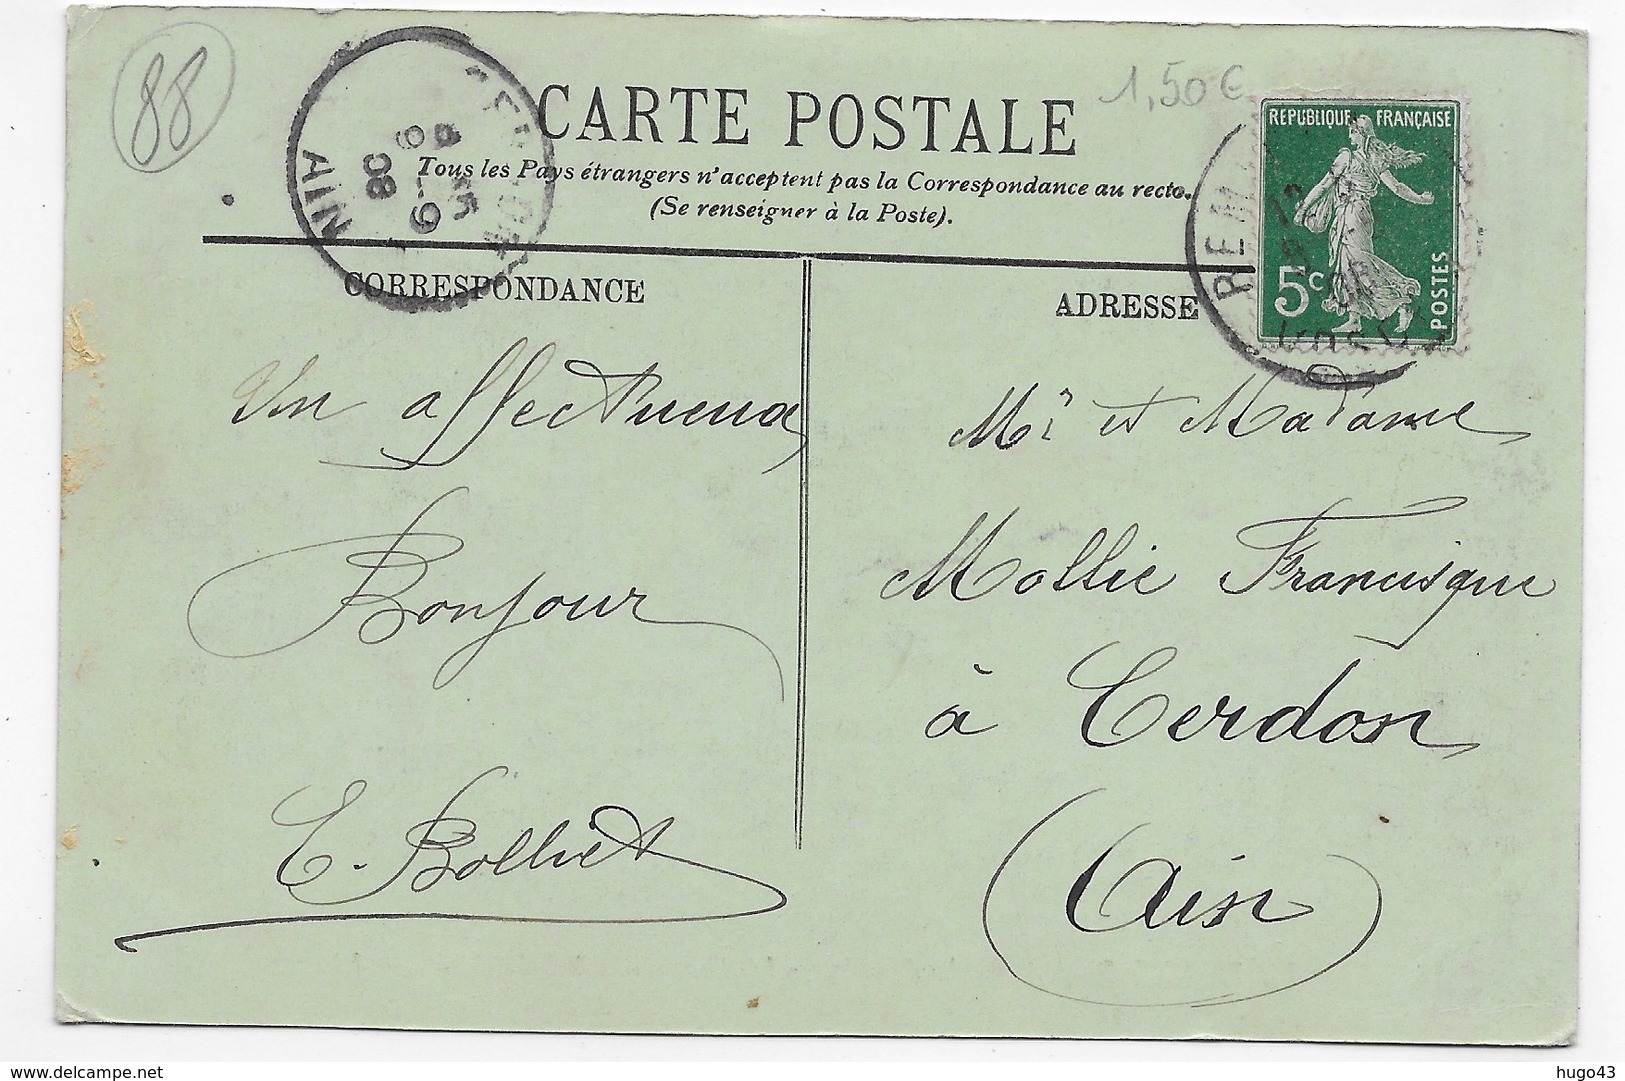 88
1,50€
CARTE POSTALE
Tous les Pays étrangers n'acceptent pas la Correspondance au recto.
(Se renseigner à la Poste).
REPUBLIQUE FRANÇAISE
5c
POSTES
REM
AIN
08
CORRESPONDANCE
ADRESSE
Un affectueux
Bonjour
E. Bolliet
Mr et Madame
Mollie Francisque
à Cerdon
(Ain)
delcampe.net
hugo43